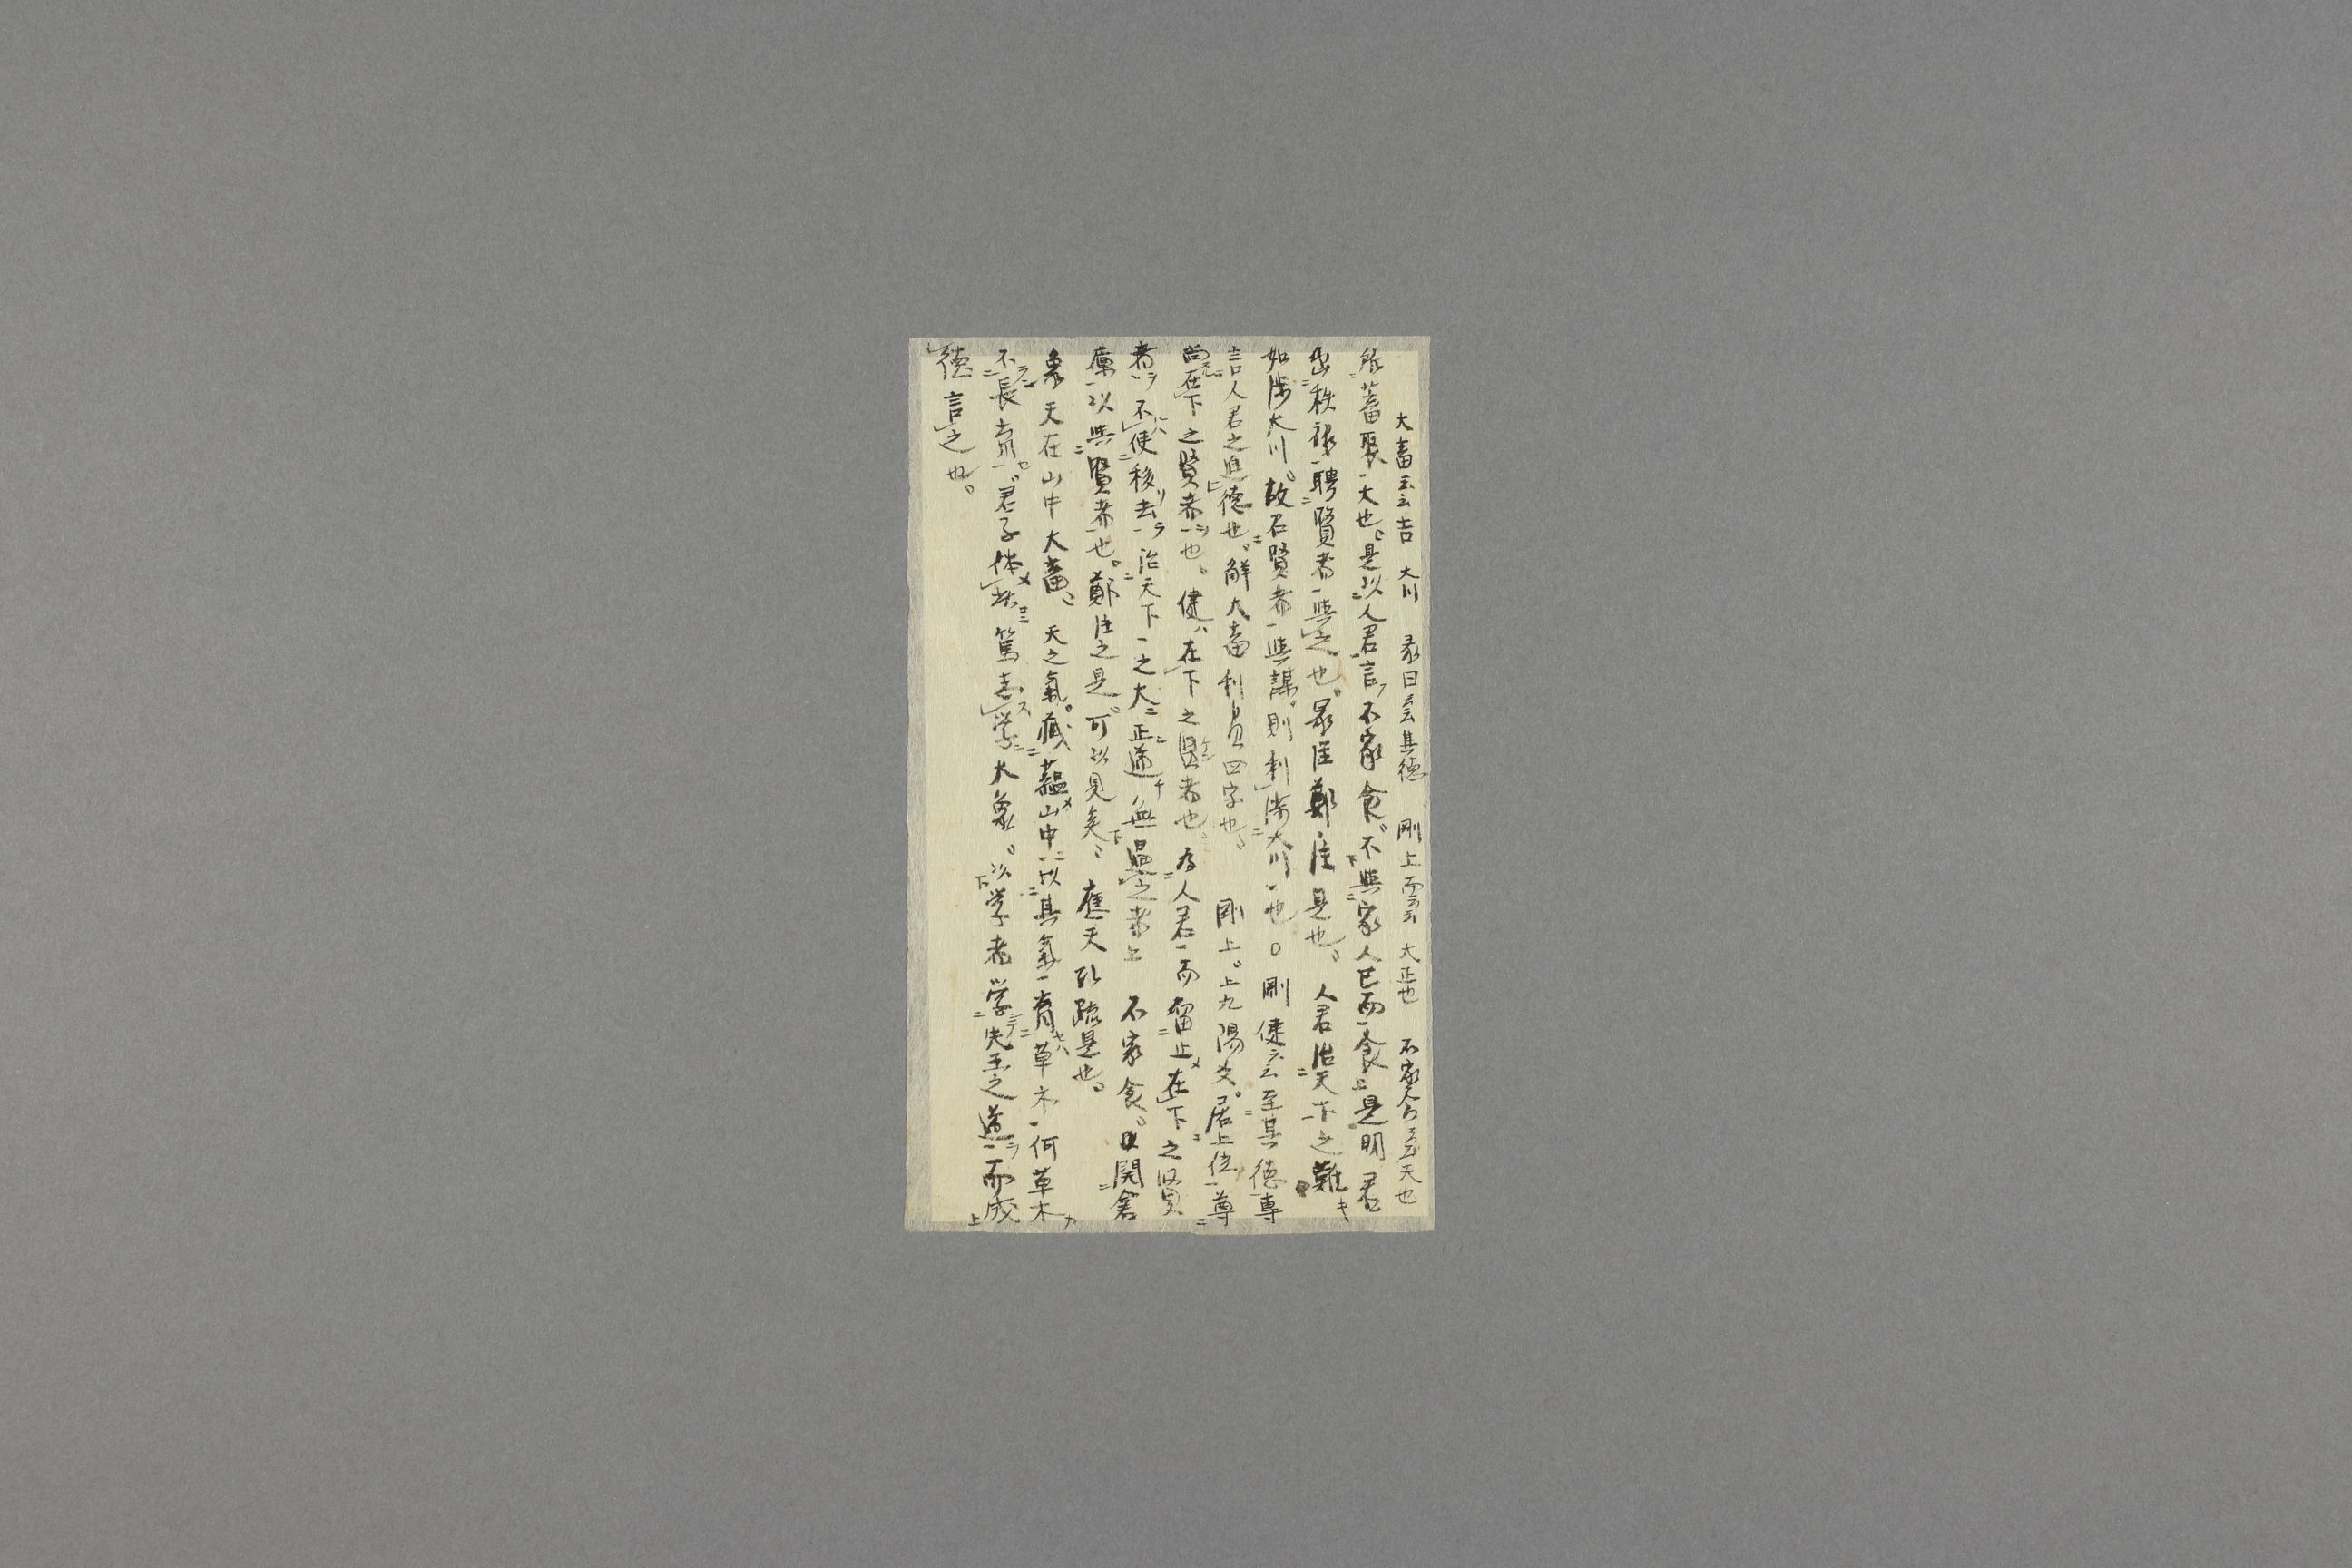 大畜至云吉　大川　彖曰至其德　剛上而云云　大正也　不家食至天也
所蓄聚大也是以人君言不家食不與家人已而食是明君
出秩禄聘賢者與之也晁注鄭注是也人君治天下之難キ
如渉大川故召賢者與謀則利渉大川也○剛健云云至其德專
言人君之進德也解大畜利貞四字也　剛上上九陽爻居上位尊
尚在下之賢者也健ハ在下之賢者也為人君而留止メ在下之賢
者ヲ不使移去治天下之大正道無過之者　不家食開倉
廩以與賢者也鄭注之是可以見矣　應天孔疏是也
象天在山中大畜天之氣藏蘊山中以其氣育草木何草木
不長育君子体篤志学大象以学者学先王之道而成
德言之也